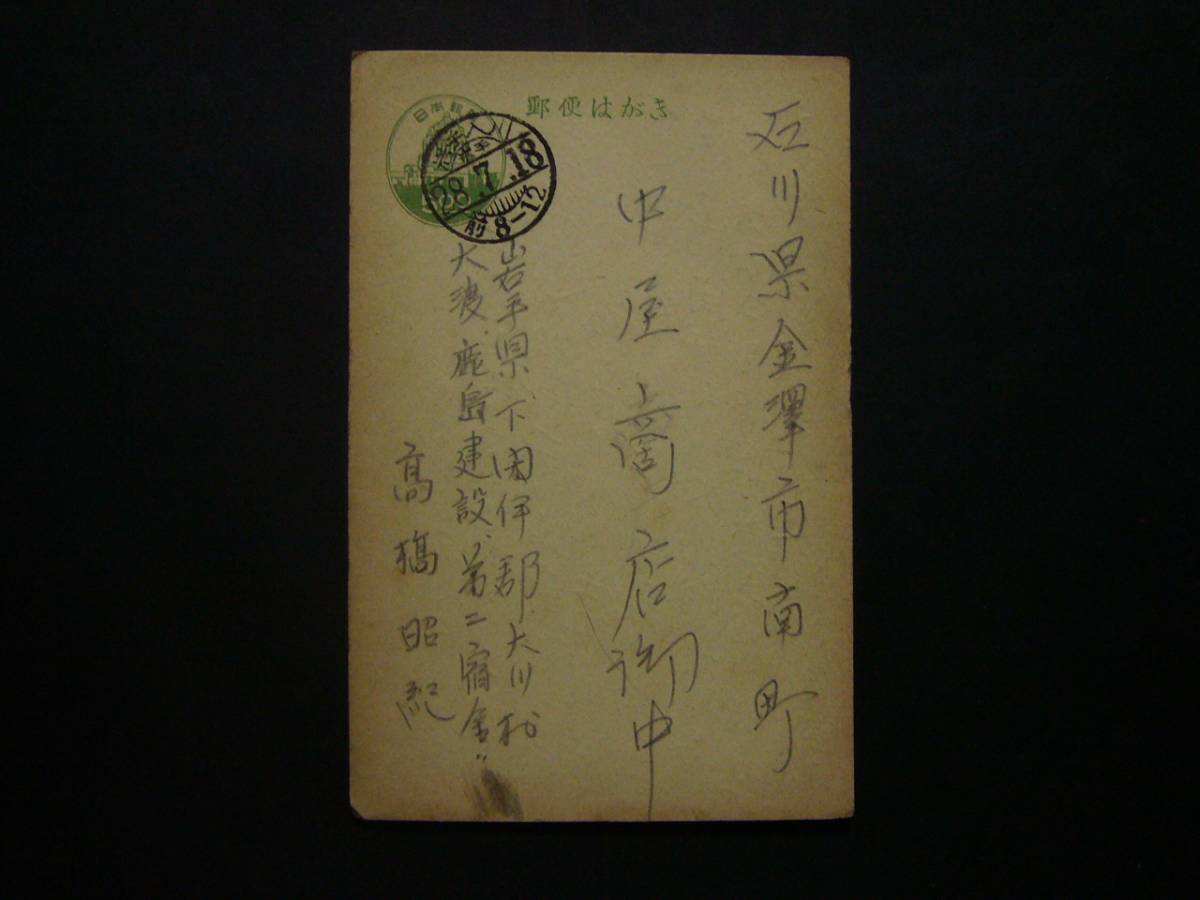 郵便はがき
日本郵便
28.7.18
前8-12
石川県金澤市南町
中屋商店御中
岩手県下閉伊郡大川村
大渡鹿島建設第二宿舎
高橋昭紀